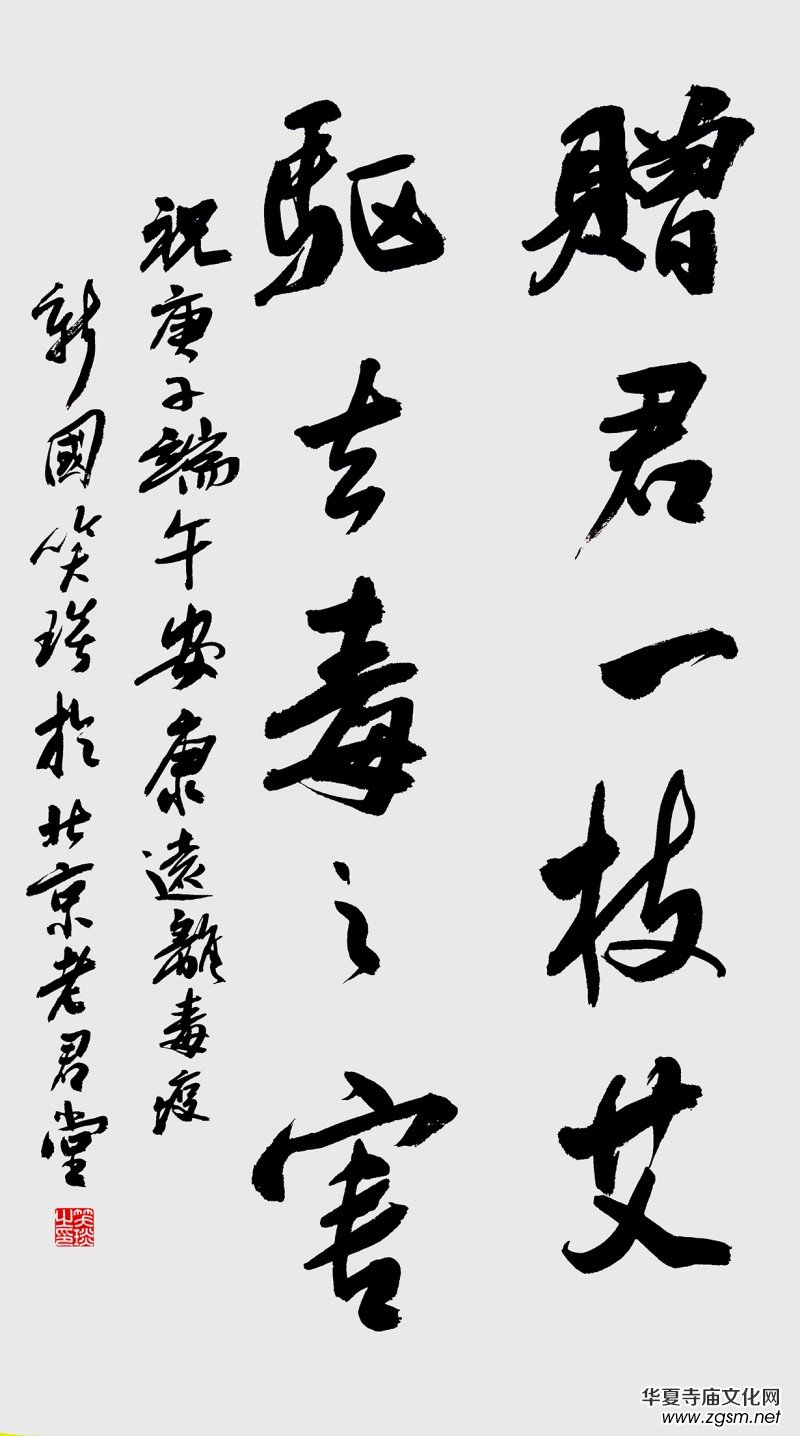 贈君一枝艾
駆去毒之害
祝庚子端午安康遠離毒疫
新國笑琰於北京老君堂
笑琰之印
华夏寺庙文化网
www.zgsm.net